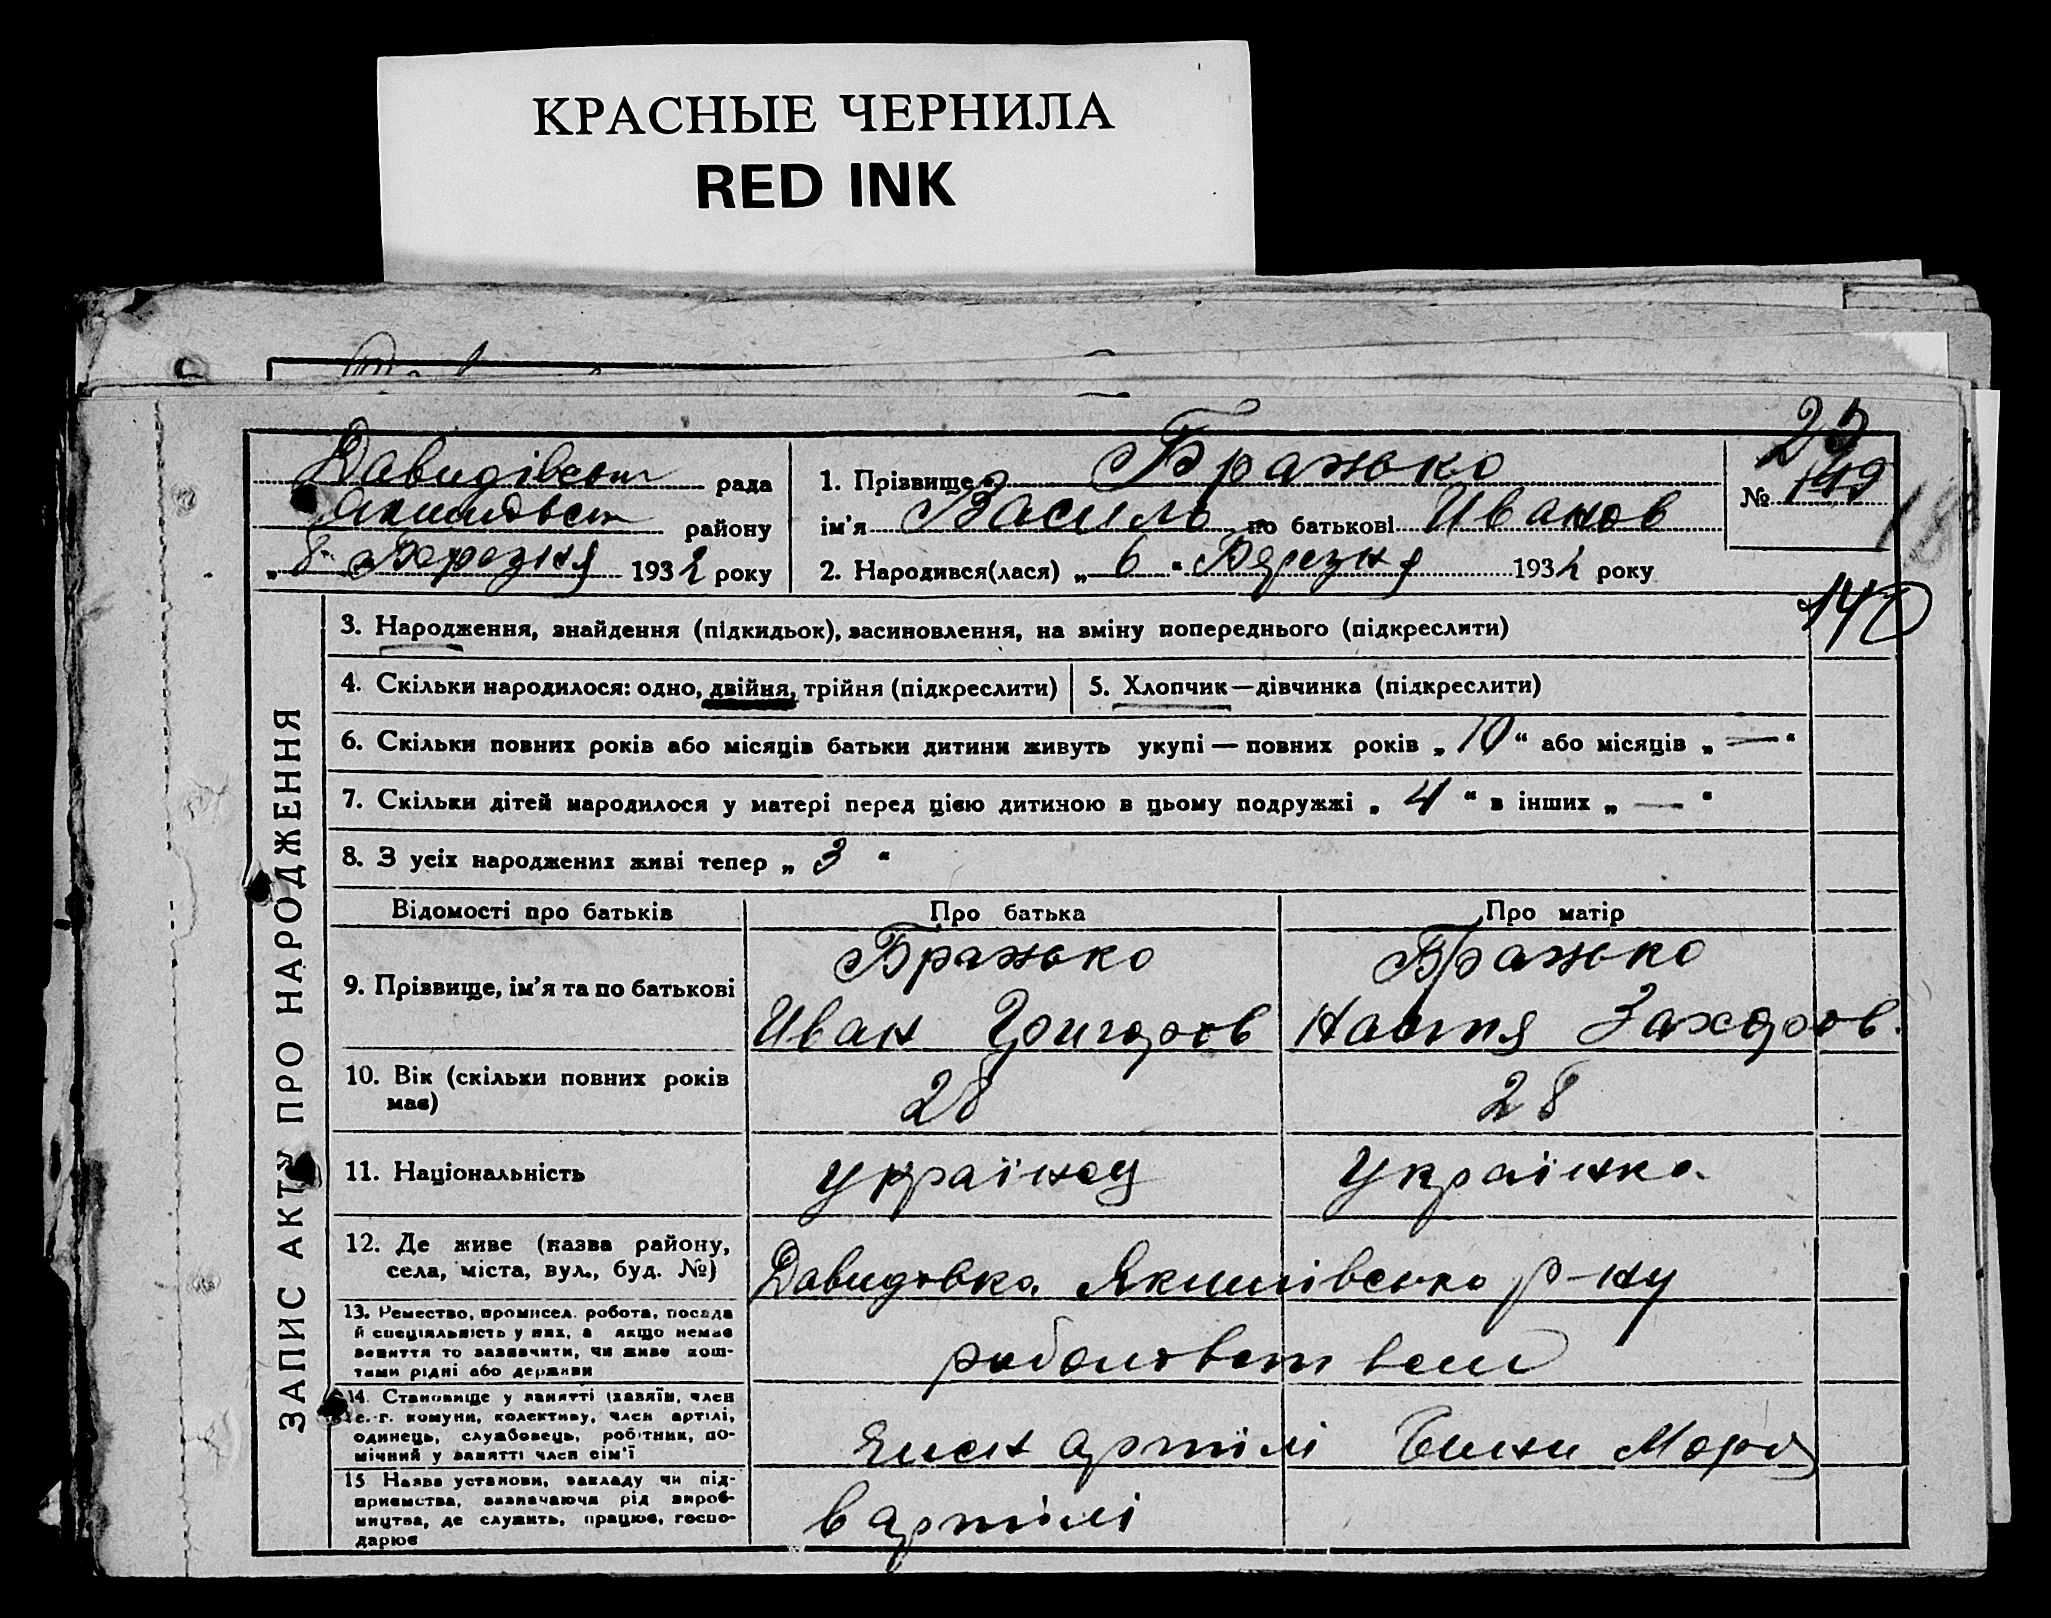 КРАСНЫЕ ЧЕРНИЛА
RED INK
23
Давидівськ рада
1. Прізвище Бражко
№ 149
18
Якимовськ району
ім'я Василь по батькові Иванов
„ 8 " Березня 1932 року
2. Народився(лася) „ 6 " Березня 1932 року
140
ЗАПИС АКТУ ПРО НАРОДЖЕННЯ
3. Народження, знайдення (підкидьок), засиновлення, на зміну попереднього (підкреслити)
4. Скільки народилося: одно, двійня, трійня (підкреслити)
5. Хлопчик—дівчинка (підкреслити)
6. Скільки повних років або місяців батьки дитини живуть укупі — повних років „ 10 “ або місяців „ — “
7. Скільки дітей народилося у матері перед цією дитиною в цьому подружжі „ 4 “ в інших „ — “
8. З усіх народжених живі тепер „ 3 “
Відомості про батьків
Про батька
Про матір
9. Прізвище, ім'я та по батькові
Бражко
Иван Григоров
Бражко
Настя Захаров.
10. Вік (скільки повних років
має)
28
28
11. Національність
Українец
Українка
12. Де живе (назва району,
села, міста, вул., буд. №)
Давидовка Якимівсько р-ну
13. Ремество, промисел, робота, посада
й спеціяльність у них, а якщо немає
заняття то зазначити, чи живе кош-
тами рідні або держави
14. Становище у занятті (хазяїн, член
с.-г. комуни, колективу, член артілі,
одинець, службовець, робітник, по-
мічний у занятті член сім'ї
член артілі
15 Назва установи, закладу чи під-
приємства, зазначаючи рід вироб-
ництва, де служить, працює, госпо-
дарює
в артілі